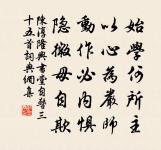 始學何所主
以心為嚴師
動作必內懼
隱微毋自欺
陳淳隆興書堂自警三
十五首詞典網集